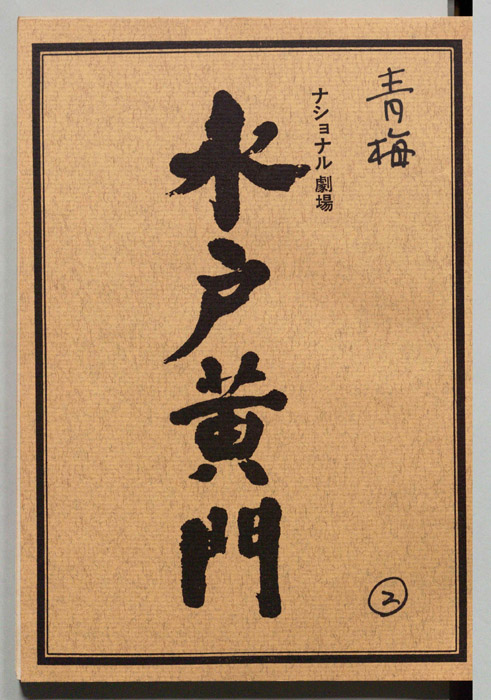 青梅
ナショナル劇場
水戸黄門
②